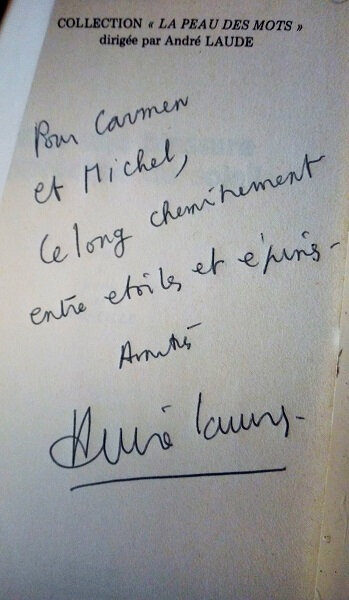 COLLECTION « LA PEAU DES MOTS »
dirigée par André LAUDE
Pour Carmen
et Michel,
ce long cheminement
entre etoiles et épines -
Amitiés